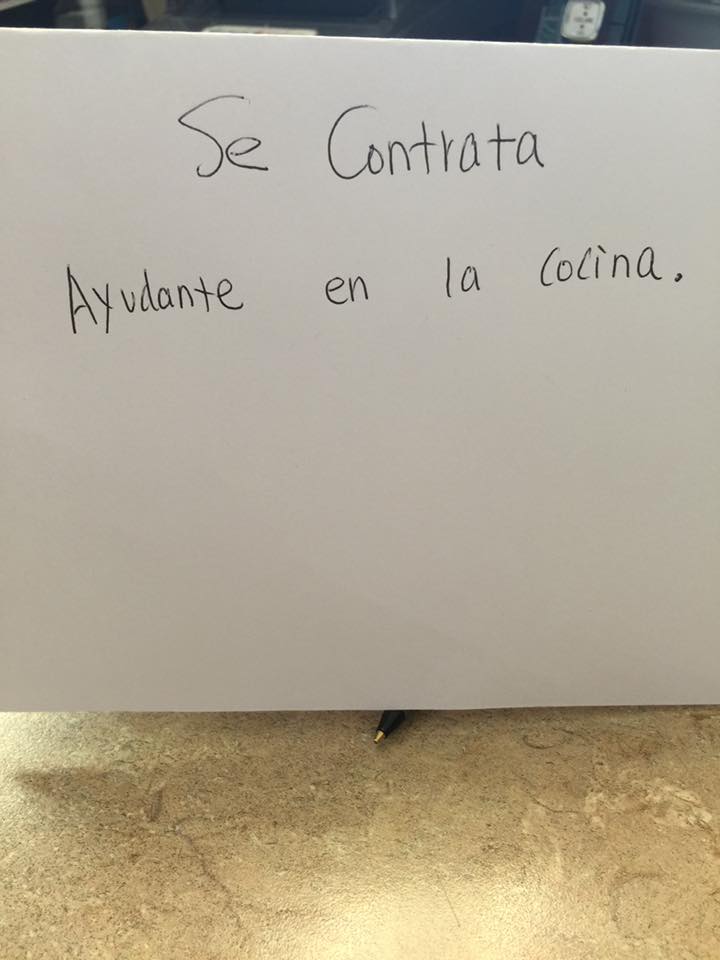 Se Contrata
Ayudante en la cocina.